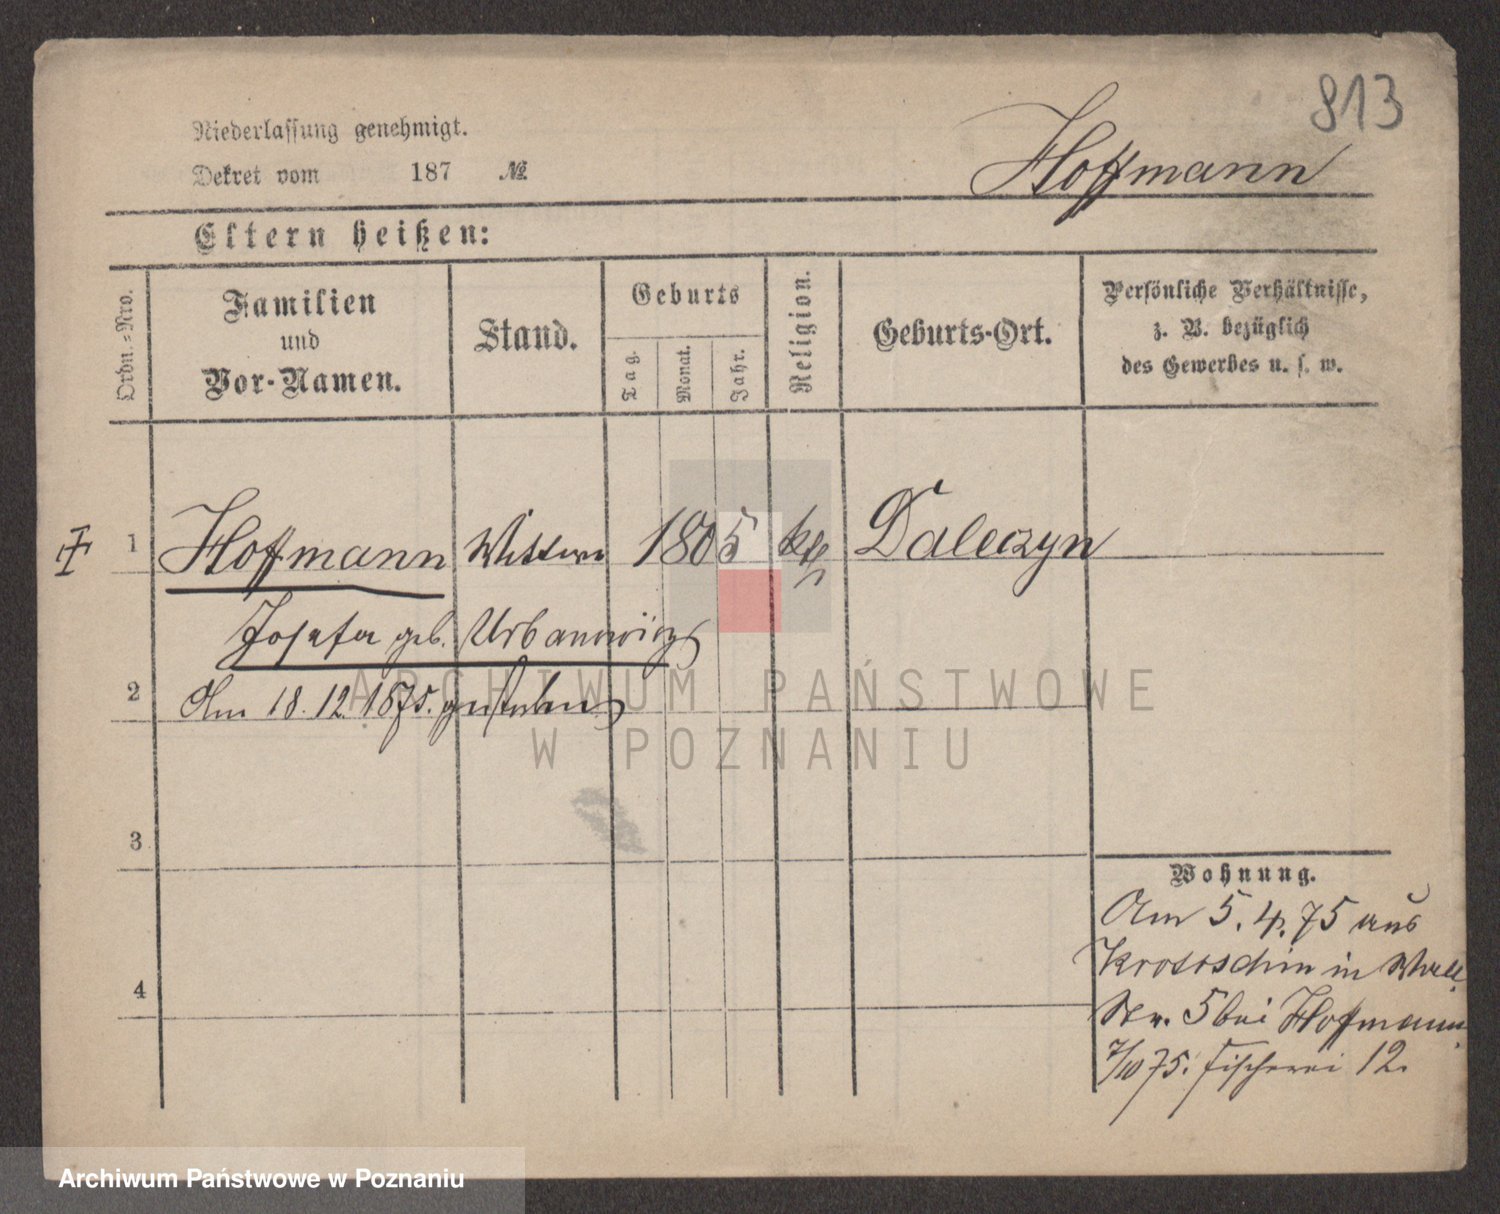 813
Niederlassung genehmigt.
Dekret vom 187 №
Hoffmann
Eltern heißen:
Ordn.-Nro.
Familien
und
Vor-Namen.
Stand.
Geburts
Tag.
Monat.
Jahr.
Religion.
Geburts-Ort.
Persönliche Verhältnisse,
z. B. bezüglich
des Gewerbes u. s. w.
1 Hoffmann Wittwe 1805 kth Daleczyn
Josefa geb. Urbanowicz
2 Am 18.12.1875. gestorben
3
4
Wohnung.
Am 5.4.75 aus
Krotoschin in Wall
Nr. 5 bei Hoffmann.
7/10 75. Fischerei 12.
ARCHIWUM PAŃSTWOWE
W POZNANIU
Archiwum Państwowe w Poznaniu